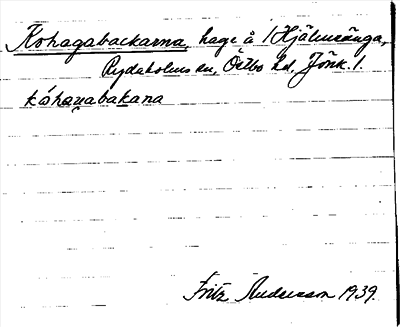 Kohagabackarna, hage å 1 Hjälmsänga,
Rydaholms sn, Östbo hd, Jönk. l.
kóhaɡabakana
Fritz Anderson 1939.